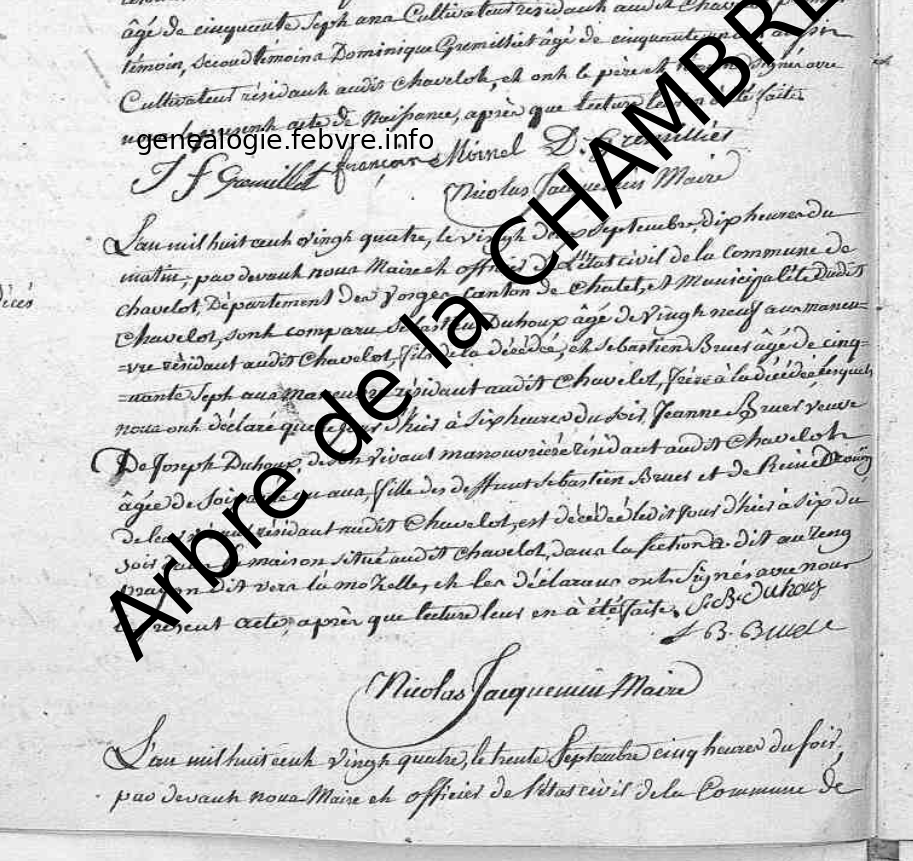 âgé de cinquante Sept ans Cultivateur résidant audit Chavelot
témoin, second témoin Dominique Gremillet âgé de cinquante
Cultivateur résidant audit Chavelot, et ont le père et signé avec
acte de Naissance, après que lecture leur en a été faite
genealogie.febvre.info
J f Gremillet françois Moinel D. Gremilliet
Nicolas Jacquemin Maire
L'an mil huit cent vingt quatre, le vingt deux Septembre, dix heures du
matin, par devant nous Maire et officier de L'état civil de la Commune de
chavelot, Département des Vosges, Canton de Chatel, et Municipalité dudit
Chavelot, sont comparu Sébastien Duhoux âgé de vingt neuf ans manou=
=vre résidant audit Chavelot, fils de la décédée, et Sebastien Bruer âgé de cinq=
=uante Sept ans résidant audit Chavelot, frère à la décédée lesquels
nous ont déclaré que le jour d'hier à Six heures du soir, Jeanne Bruer veuve
De Joseph Duhoux, de son vivant manouvrière résidant audit Chavelot
âgée de soixante ans, fille des deffunt Sebastien Bruer et de Reine
de leur résidant audit Chavelot, est décédée ledit jour d'hier à six du
soir dans Sa maison située audit Chavelot, dans la section B. dit au Zeng
Dit vers la mozelle, et les déclarans ont Signés avec nous
le présent acte, après que lecture leur en à été faite. S. B. Duhoux
S B. Bruere
Nicolas Jacquemin Maire
L'an mil huit cent Vingt quatre, le trente Septembre cinq heures du soir,
par devant nous Maire et officier de l'état civil de la Commune de
Arbre de la CHAMBRE